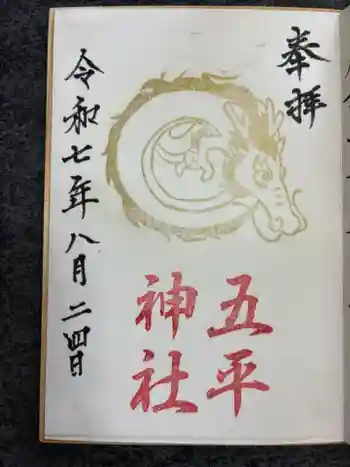 奉拝
五平
神社
令和七年八月二四日